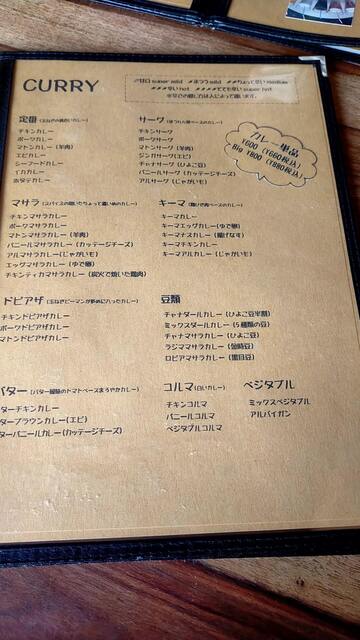 CURRY
甘口 super mild
まつう mild
ちょっと辛い medium
辛い hot
とても辛い super hot
※辛さの感じ方は人によって違います。
カレー単品
¥600 (¥660税込)
Big ¥800 (¥880税込)
定番
チキンカレー
ポークカレー
マトンカレー (羊肉)
エビカレー
シーフードカレー
イカカレー
ホタテカレー
サーグ (ほうれん草ベースのカレー)
チキンサーグ
ポークサーグ
マトンサーグ (羊肉)
ジンガサーグ(エビ)
チャナサーグ (ひよこ豆)
パニールサーグ (カッテージチーズ)
アルサーグ (じゃがいも)
マサラ (スパイスの効いたちょっと濃いめのカレー)
チキンマサラカレー
ポークマサラカレー
マトンマサラカレー (羊肉)
パニールマサラカレー (カッテージチーズ)
アルマサラカレー (じゃがいも)
エッグマサラカレー (ゆで卵)
チキンティカマサラカレー (炭火で焼いた鶏肉)
キーマ (鶏ひき肉ベースのカレー)
キーマカレー
キーマエッグカレー (ゆで卵)
キーマナスカレー (揚げなす)
キーマチキンカレー
キーマアルカレー (じゃがいも)
ドピアザ (玉ねぎとピーマンが多めに入ったカレー)
チキンドピアザカレー
ポークドピアザカレー
マトンドピアザカレー
豆類
チャナダールカレー (ひよこ豆半割)
ミックスダールカレー (5種類の豆)
チャナマサラカレー (ひよこ豆)
ラジママサラカレー (金時豆)
ロビアマサラカレー (黒目豆)
バター (バター風味のトマトベースまろやかカレー)
ターチキンカレー
ターブラウンカレー(エビ)
ターパニールカレー(カッテージチーズ)
コルマ (白いカレー)
チキンコルマ
パニールコルマ
ベジタブルコルマ
ベジタブル
ミックスベジタブル
アルバイガン